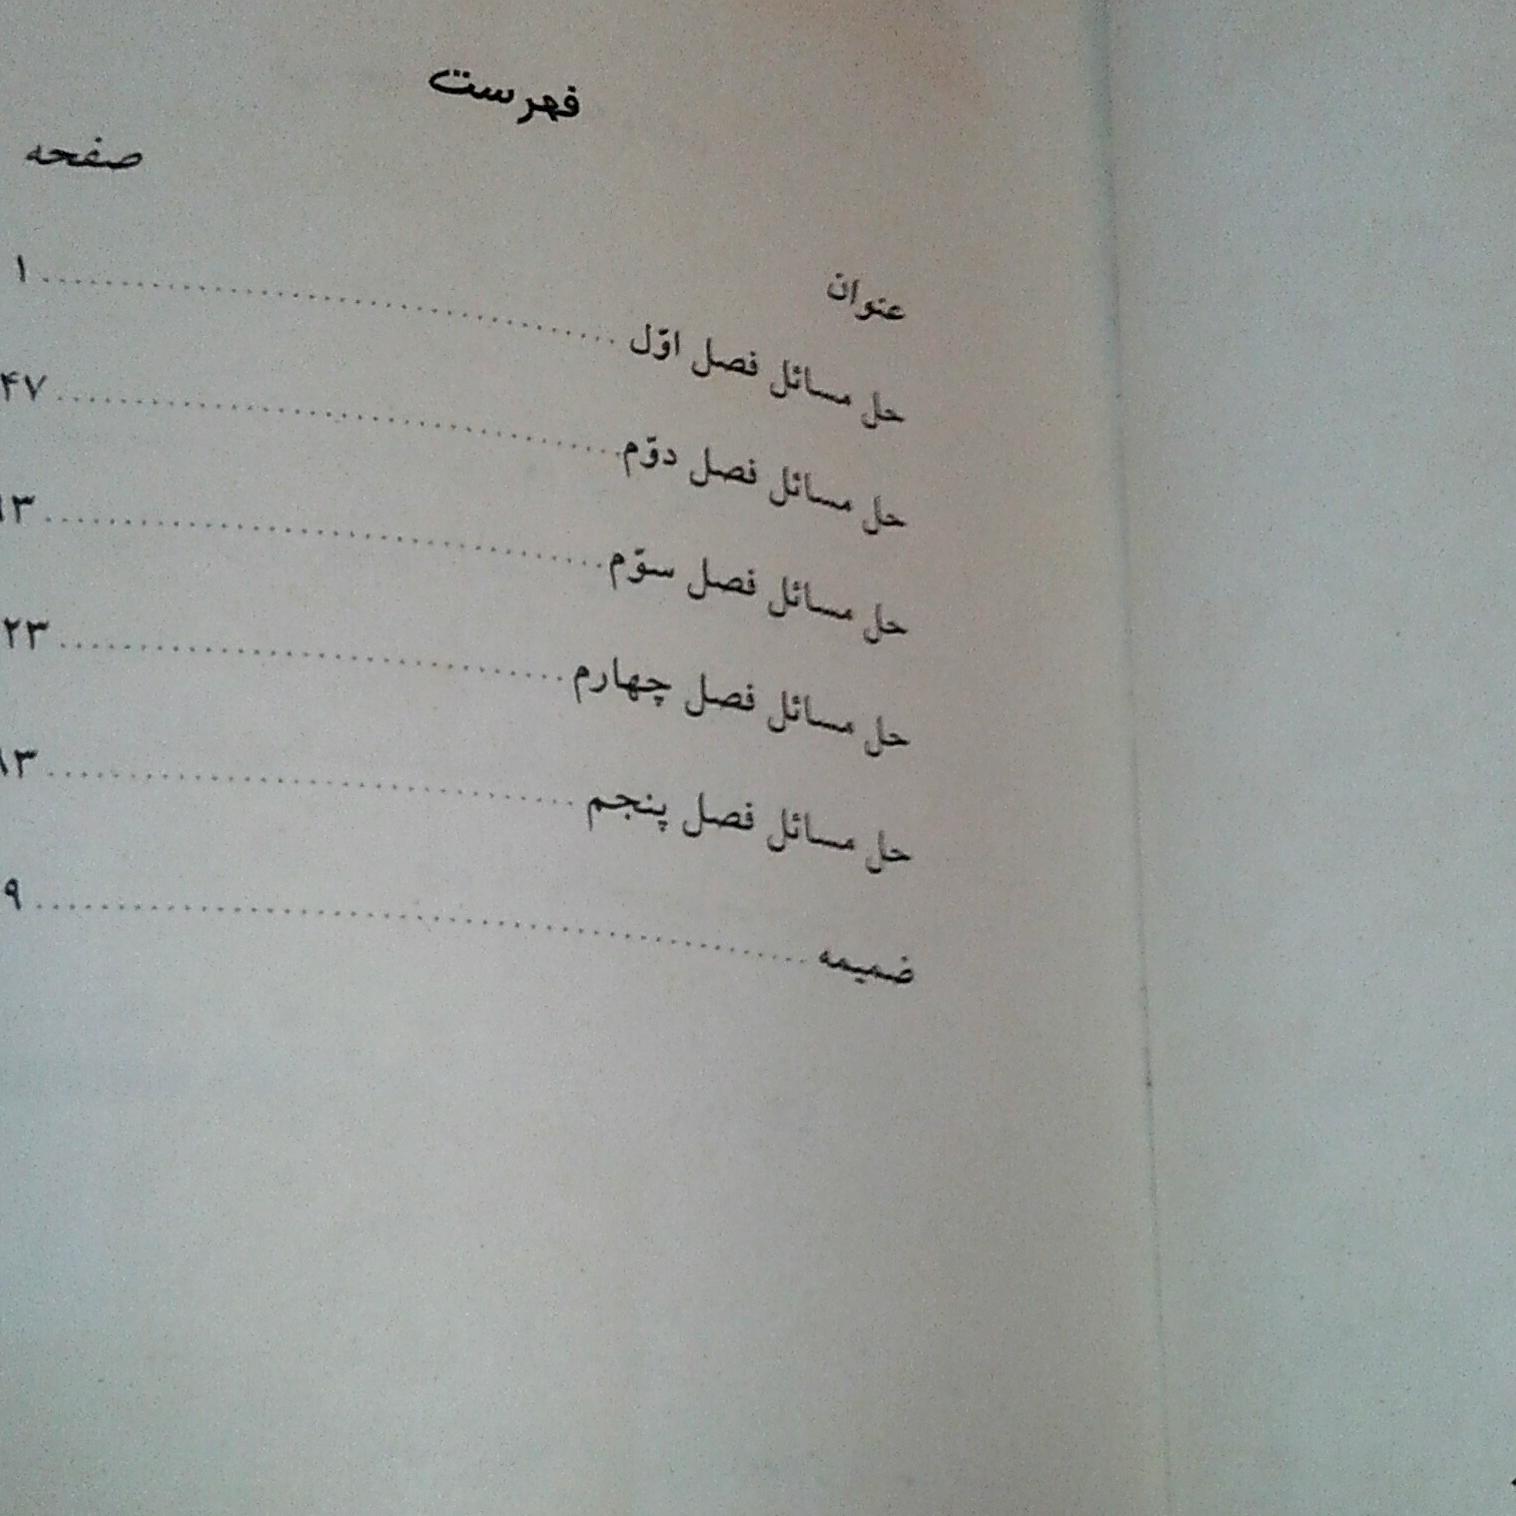 فهرست
صفحه
عنوان
حل مسائل فصل اوّل ........ ۱
حل مسائل فصل دوّم ........ ۴۷
حل مسائل فصل سوّم ........
حل مسائل فصل چهارم ........ ۲۳
حل مسائل فصل پنجم ........
ضمیمه ........ ۹